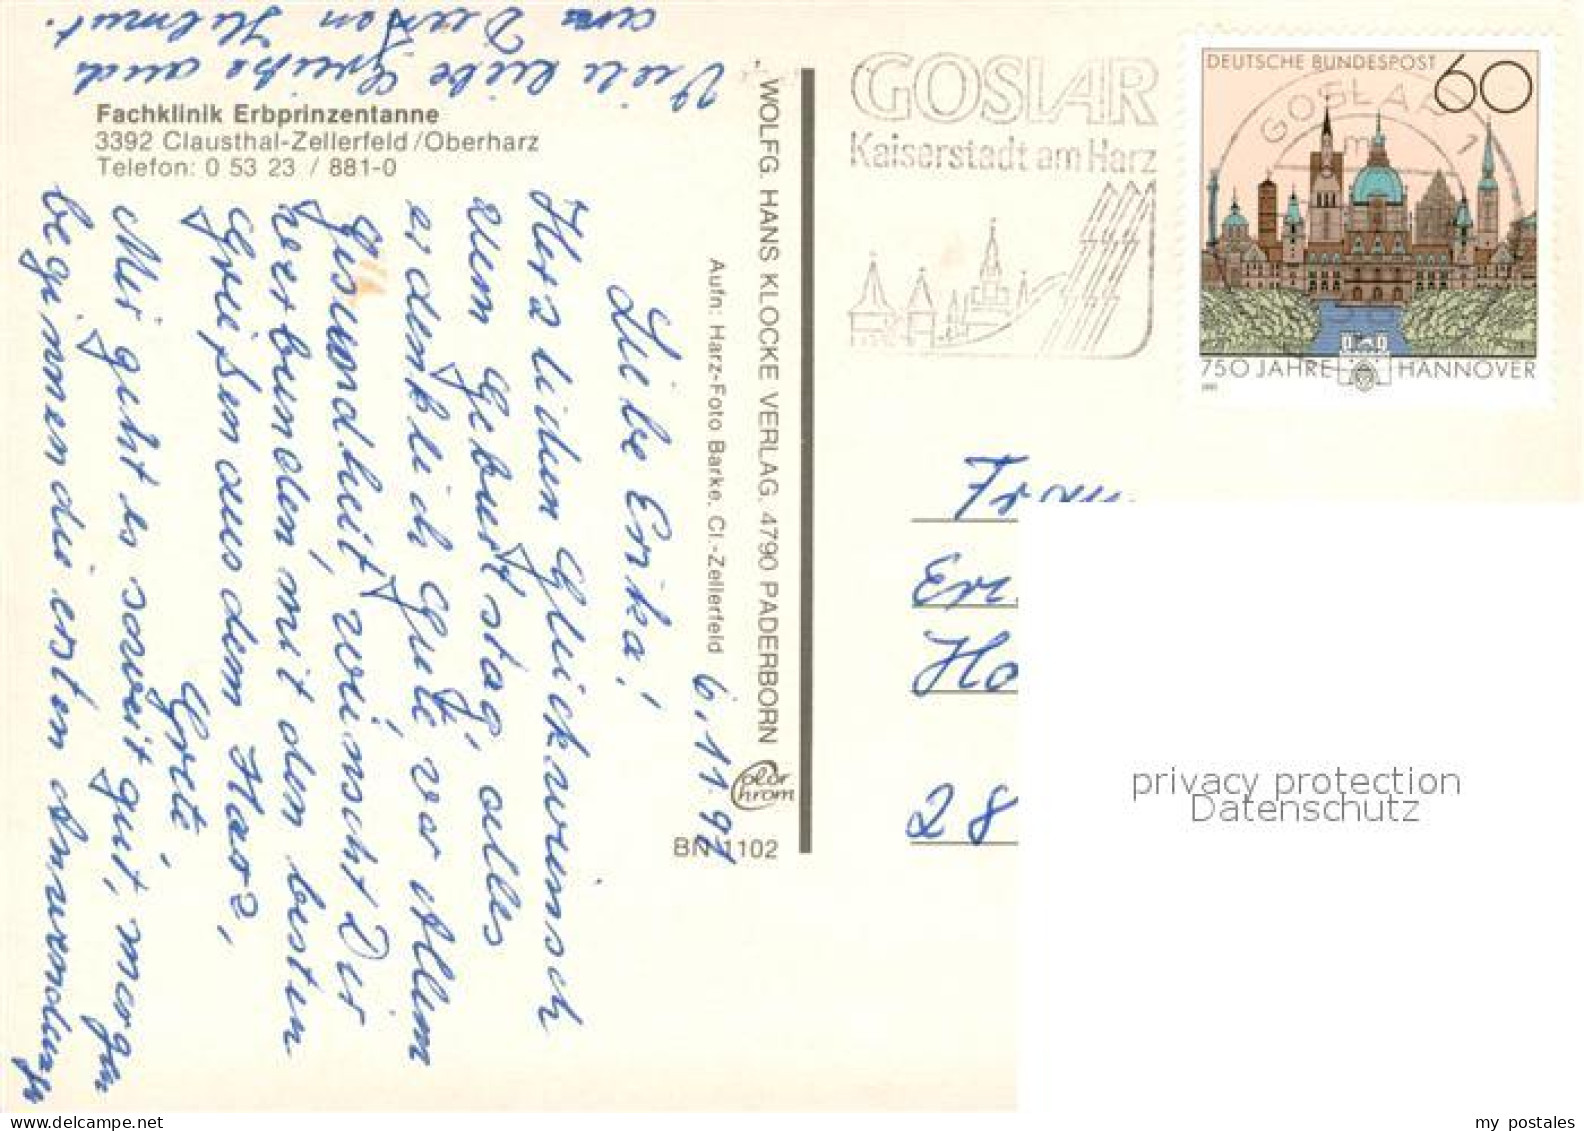 Fachklinik Erbprinzentanne
3392 Clausthal-Zellerfeld/Oberharz
Telefon: 0 53 23 / 881-0
6.11.91
Liebe Erika!
Herzlichen Glückwunsch
zum Geburtstag, alles
erdenklich Gute vor Allem
Gesundheit, wünscht Dir
verbunden, mit den besten
Grüßen aus dem Harz,
Grete,
Mir geht es soweit gut, morgen
beginnen die ersten Anwendungen
Viele liebe Grüße auch
an Deinen Helmut.
WOLFG. HANS KLOCKE VERLAG, 4790 PADERBORN
Aufn: Harz-Foto Barke, Cl.-Zellerfeld
Color
Chrom
BN 1102
GOSLAR
Kaiserstadt am Harz
DEUTSCHE BUNDESPOST 60
GOSLAR 1
m
750 JAHRE HANNOVER
1991
Frau
28
privacy protection
Datenschutz
my postales